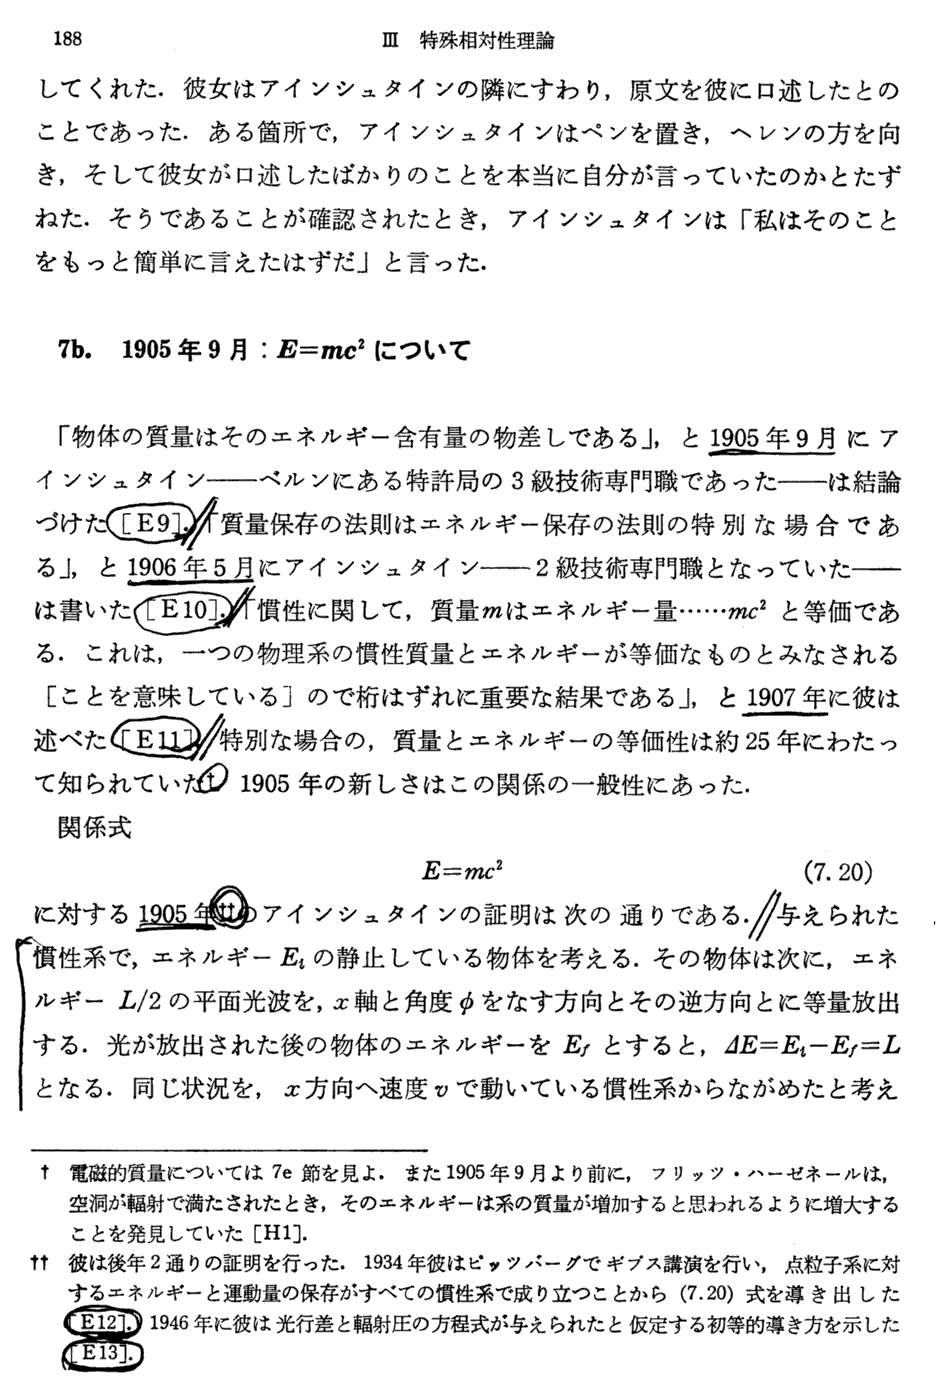 188
III 特殊相対性理論
してくれた．彼女はアインシュタインの隣にすわり，原文を彼に口述したとの
ことであった．ある箇所で，アインシュタインはペンを置き，ヘレンの方を向
き，そして彼女が口述したばかりのことを本当に自分が言っていたのかとたず
ねた．そうであることが確認されたとき，アインシュタインは「私はそのこと
をもっと簡単に言えたはずだ」と言った．
7b. 1905年9月：E=mc² について
「物体の質量はそのエネルギー含有量の物差しである」，と1905年9月にア
インシュタイン——ベルンにある特許局の3級技術専門職であった——は結論
づけた［E9］．「質量保存の法則はエネルギー保存の法則の特別な場合であ
る」，と1906年5月にアインシュタイン——2級技術専門職となっていた——
は書いた［E10］．「慣性に関して，質量mはエネルギー量……mc² と等価であ
る．これは，一つの物理系の慣性質量とエネルギーが等価なものとみなされる
［ことを意味している］ので桁はずれに重要な結果である」，と1907年に彼は
述べた［E11］．特別な場合の，質量とエネルギーの等価性は約25年にわたっ
て知られていた†．1905年の新しさはこの関係の一般性にあった．
関係式
E=mc² (7.20)
に対する1905年††のアインシュタインの証明は次の通りである．与えられた
慣性系で，エネルギー Eᵢ の静止している物体を考える．その物体は次に，エネ
ルギー L/2 の平面光波を，x 軸と角度 φ をなす方向とその逆方向とに等量放出
する．光が放出された後の物体のエネルギーを E_f とすると，ΔE=Eᵢ−E_f=L
となる．同じ状況を，x 方向へ速度 v で動いている慣性系からながめたと考え
† 電磁的質量については 7e 節を見よ．また1905年9月より前に，フリッツ・ハーゼネールは，
空洞が輻射で満たされたとき，そのエネルギーは系の質量が増加すると思われるように増大する
ことを発見していた［H1］．
†† 彼は後年2通りの証明を行った．1934年彼はピッツバーグでギブス講演を行い，点粒子系に対
するエネルギーと運動量の保存がすべての慣性系で成り立つことから (7.20) 式を導き出した
［E12］．1946年に彼は光行差と輻射圧の方程式が与えられたと仮定する初等的導き方を示した
［E13］．